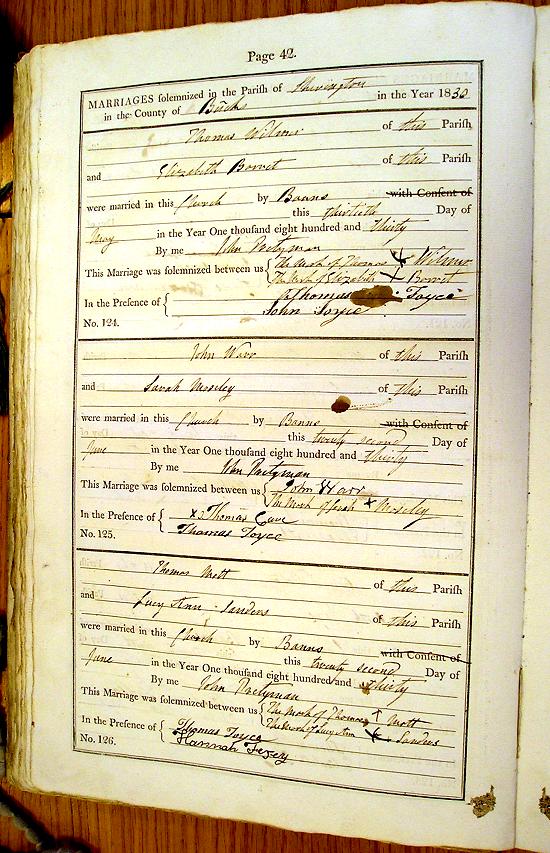 Page 42.
MARRIAGES solemnized in the Parish of Sherington
in the County of Bucks in the Year 1830
Thomas Wilmer of this Parish
and Elizabeth Borret of this Parish
were married in this Church by Banns with Consent of
this thirtieth Day of
May in the Year One thousand eight hundred and thirty
By me John Pretyman
This Marriage was solemnized between us { The Mark of Thomas X Wilmer
The Mark of Elizabeth X Borret
In the Presence of { Thomas Joyce
John Joyce
No. 124.
John Warr of this Parish
and Sarah Moseley of this Parish
were married in this Church by Banns with Consent of
this twenty second Day of
June in the Year One thousand eight hundred and thirty
By me John Pretyman
This Marriage was solemnized between us { John Warr
The Mark of Sarah X Moseley
In the Presence of { X Thomas Cave
Thomas Joyce
No. 125.
Thomas Mott of this Parish
and Lucy Ann Sanders of this Parish
were married in this Church by Banns with Consent of
this twenty second Day of
June in the Year One thousand eight hundred and thirty
By me John Pretyman
This Marriage was solemnized between us { The Mark of Thomas X Mott
The Mark of Lucy Ann X Sanders
In the Presence of { Thomas Joyce
Hannah
No. 126.